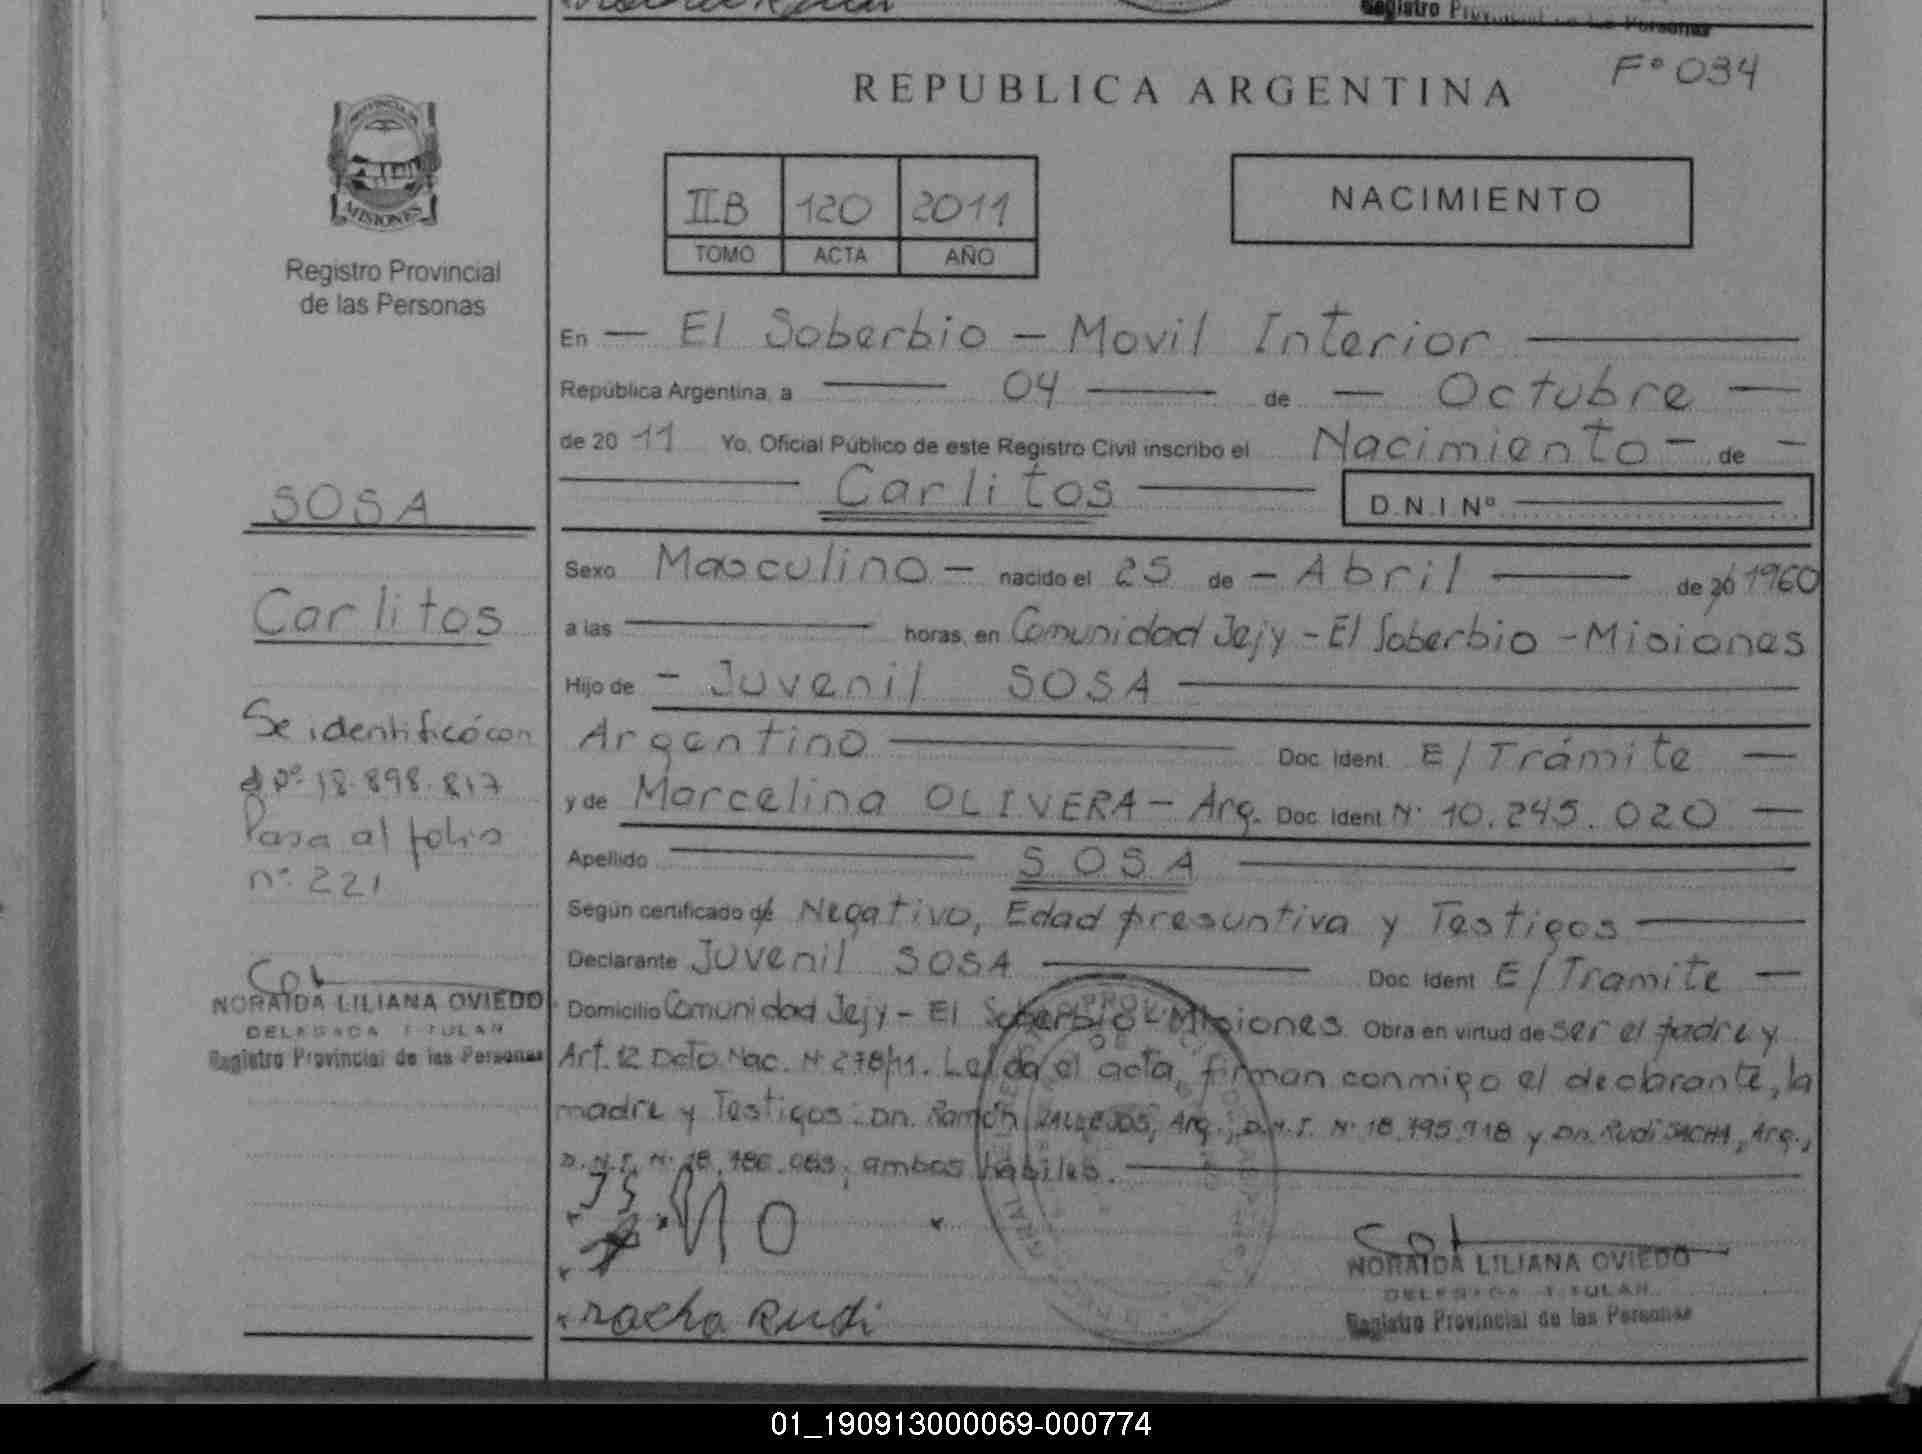 Registro Provincial de las Personas
Fº 034
REPUBLICA ARGENTINA
PROVINCIA DE
MISIONES
Registro Provincial
de las Personas
IIB 120 2011
TOMO ACTA AÑO
NACIMIENTO
En — El Soberbio — Movil Interior —
República Argentina, a — 04 — de — Octubre —
de 20 11 Yo, Oficial Público de este Registro Civil inscribo el Nacimiento — de —
— Carlitos — D.N.I. Nº —
Sexo Masculino — nacido el 25 de — Abril — de 20 1960
a las — horas, en Comunidad Jejy - El Soberbio - Misiones
Hijo de - Juvenil SOSA —
Argentino — Doc. Ident. E/Trámite —
y de Marcelina OLIVERA - Arg. Doc. Ident. Nº 10.245.020 —
Apellido — SOSA —
Según certificado de Negativo, Edad presuntiva y Testigos —
Declarante Juvenil SOSA — Doc. Ident E/Tramite —
Domicilio Comunidad Jejy - El Soberbio - Misiones Obra en virtud de ser el padre y
Art. 12 Dcto. Nac. Nº 278/11. Leída el acta, firman conmigo el declarante, la
madre y Testigos: Dn. Ramón VALLEJOS, Arg., D.N.I. Nº 18.795.918 y Dn. Rudi SACHA, Arg.,
D.N.I. Nº 18.786.083, ambos hábiles. —
JS
MO
Rudi
NORAIDA LILIANA OVIEDO
DELEGADA TITULAR
Registro Provincial de las Personas
SOSA
Carlitos
Se identificó con
dº 18.898.817
Pasa al folio
nº 221
NORAIDA LILIANA OVIEDO
DELEGADA TITULAR
Registro Provincial de las Personas
01_190913000069-000774